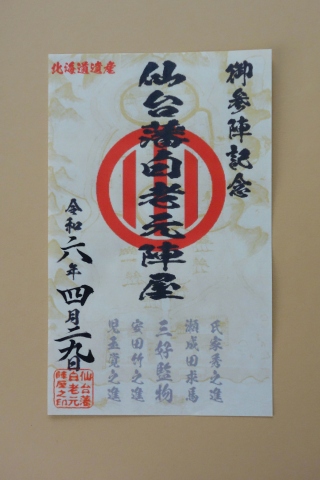 北海道遺産
御参陣記念
仙台藩白老元陣屋
令和六年四月二九日
氏家秀之進
瀬成田求馬
三好監物
安田竹之進
児玉覚之進
仙台藩
白老元
陣屋之印